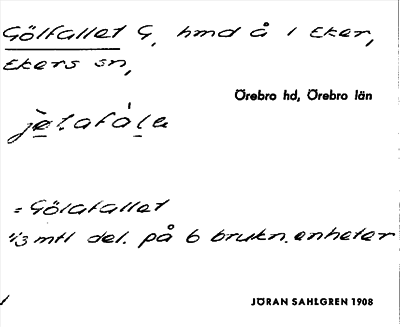 Gölfallet G, hmd å 1 Eker,
Ekers sn,
Örebro hd, Örebro län
= Gölafallet
1/3 mtl del. på 6 brukn.enheter
JÖRAN SAHLGREN 1908